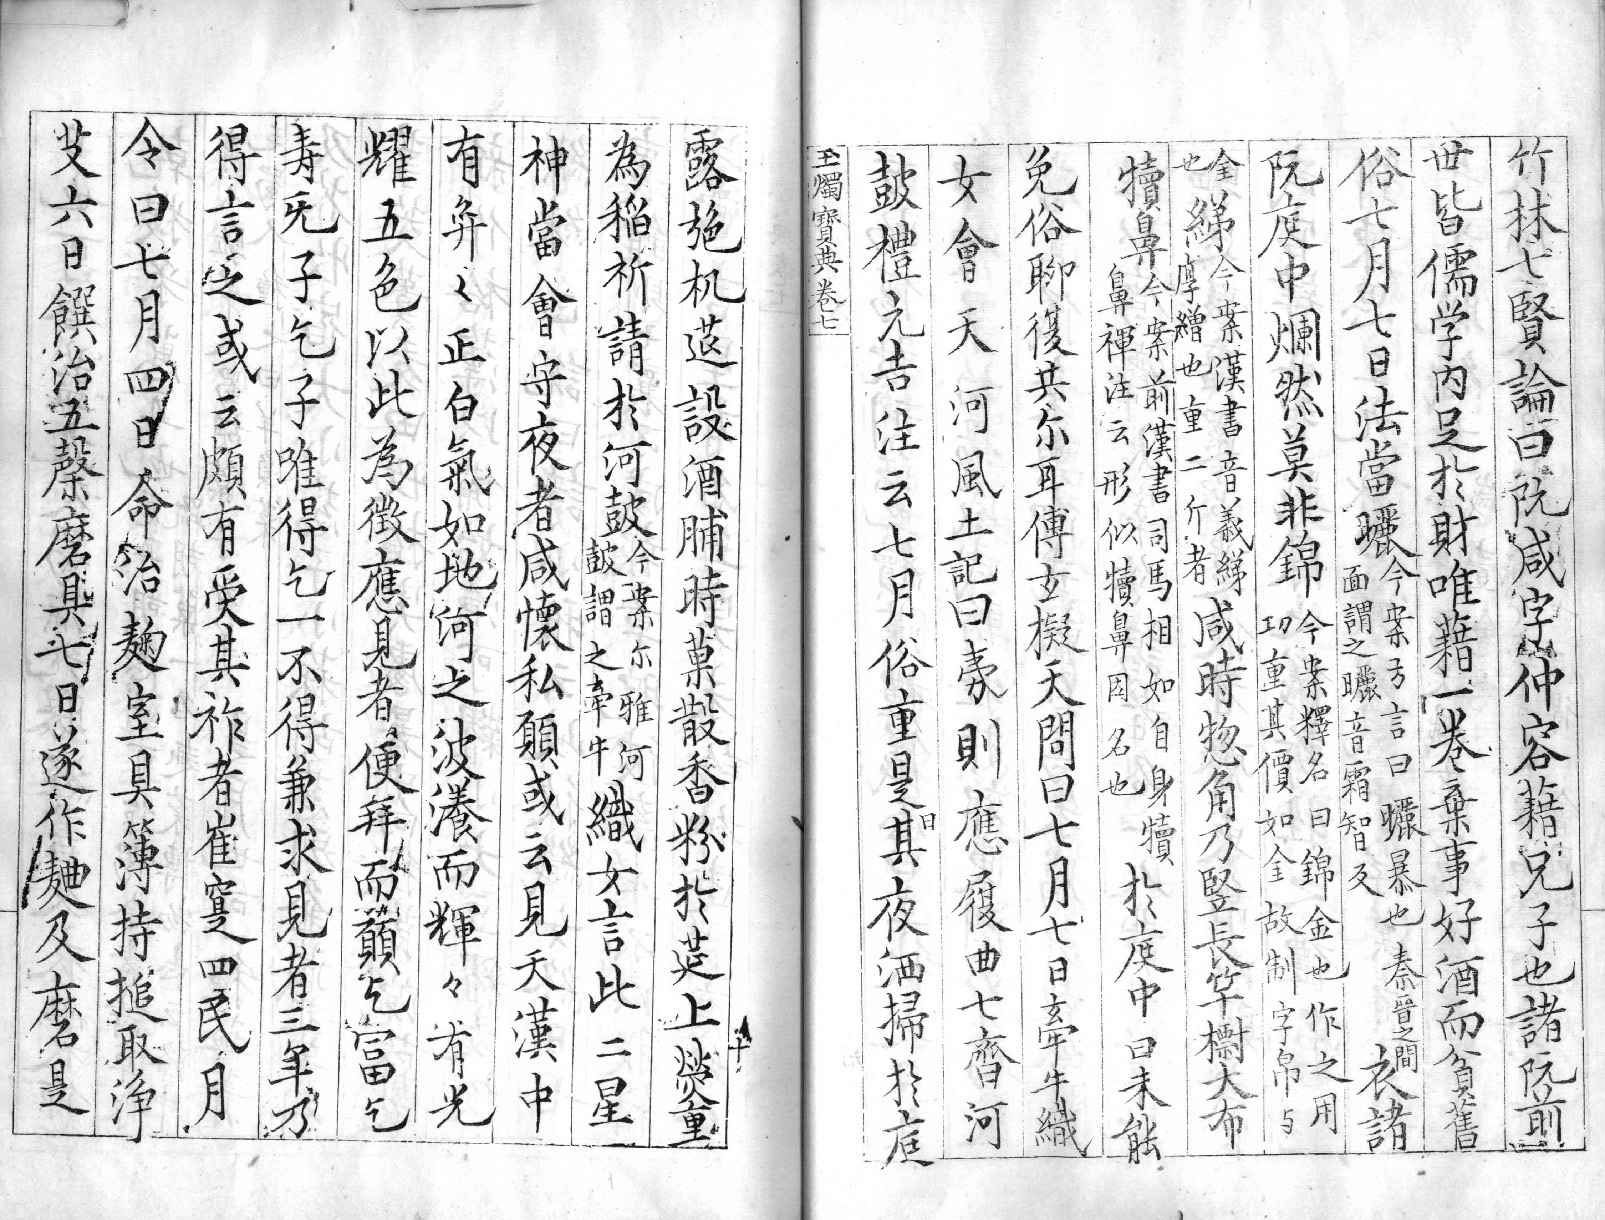 竹林七賢論曰阮咸字仲容藉兄子也諸阮前
世皆儒学内足於財唯藉一巷棄事好酒而貧舊
俗七月七日法當曬今案方言曰曬暴也秦晉之間面謂之曬音霜智反衣諸
阮庭中爛然莫非錦今案釋名曰錦金也作之用功重其價如金故制字帛与
金也綈今案漢書音義綈厚繒也重二斤者咸時惣角乃竪長竿檦大布
犢鼻今案前漢書司馬相如自身犢鼻褌注云形似犢鼻因名也於庭中曰未能
免俗聊復共尓耳傅玄擬天問曰七月七日牽牛織
女會天河風土記曰夷則應履曲七齊河
鼓禮元吉注云七月俗重是日其夜洒掃於庭
玉燭寶典卷七
露施机莚設酒脯時菓散香粉於莚上熒重
為稲祈請於河鼓今案尓雅河鼓謂之牽牛織女言此二星
神當會守夜者咸懷私願或云見天漢中
有弈々正白氣如地河之波瀁而輝々有光
耀五色以此為徴應見者便拜而願乞富乞
寿旡子乞子唯得乞一不得兼求見者三年乃
得言之或云頗有受其祚者崔寔四民月
令曰七月四日命治麹室具簿持搥取浄
艾六日饌治五糵磨具七日遂作麹及磨是
十